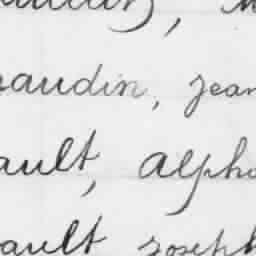 audin, jean
ault, alpho
ault joseph